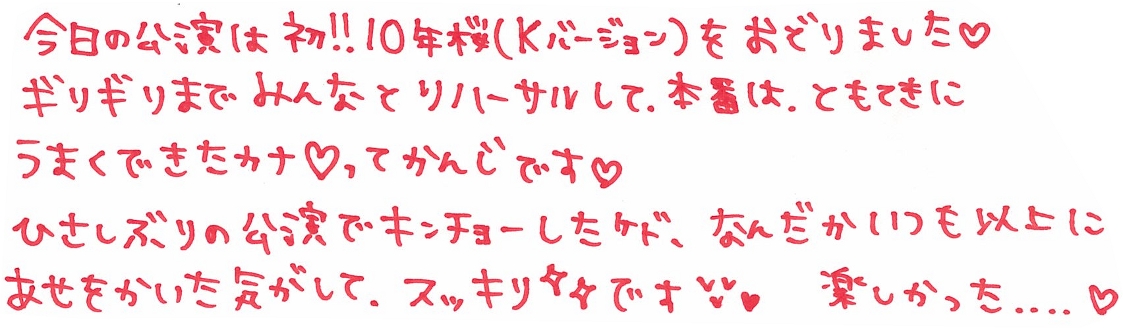 今日の公演は初!!10年桜(Kバージョン)をおどりました♡
ギリギリまでみんなとリハーサルして.本番は.ともてきに
うまくできたカナ♡ってかんじです♡
ひさしぶりの公演でキンチョーしたケド、なんだかいつも以上に
あせをかいた気がして.スッキリです♥ 楽しかった....♡